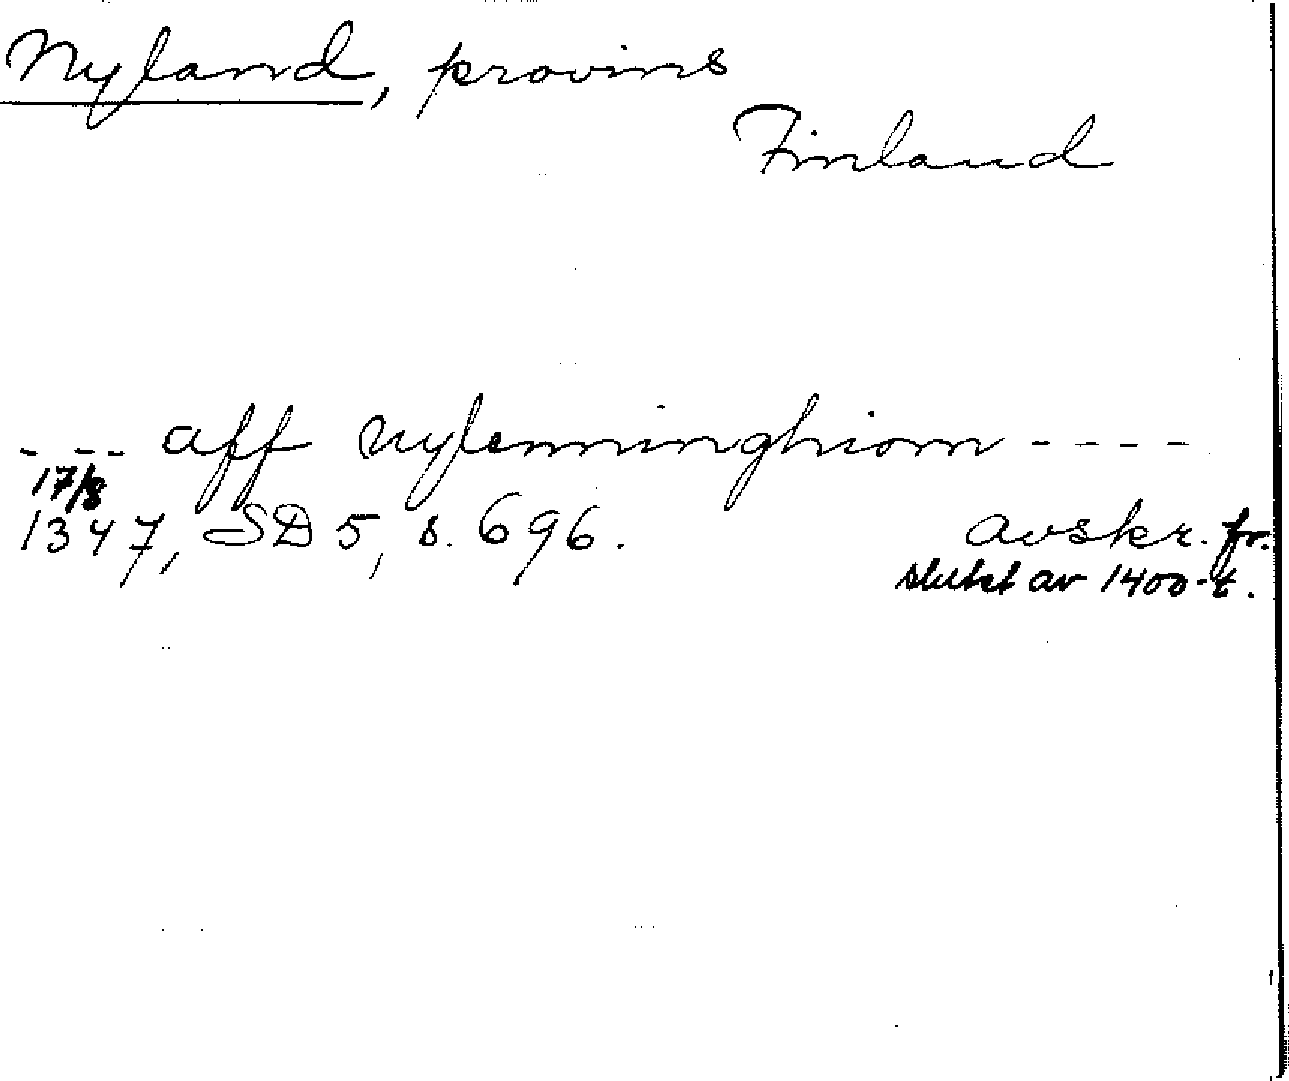 Nyland, provins
Finland
- -- aff nylenninghiom ----
17/8
1347, SD 5, s. 696. avskr. fr.
slutet av 1400-t.